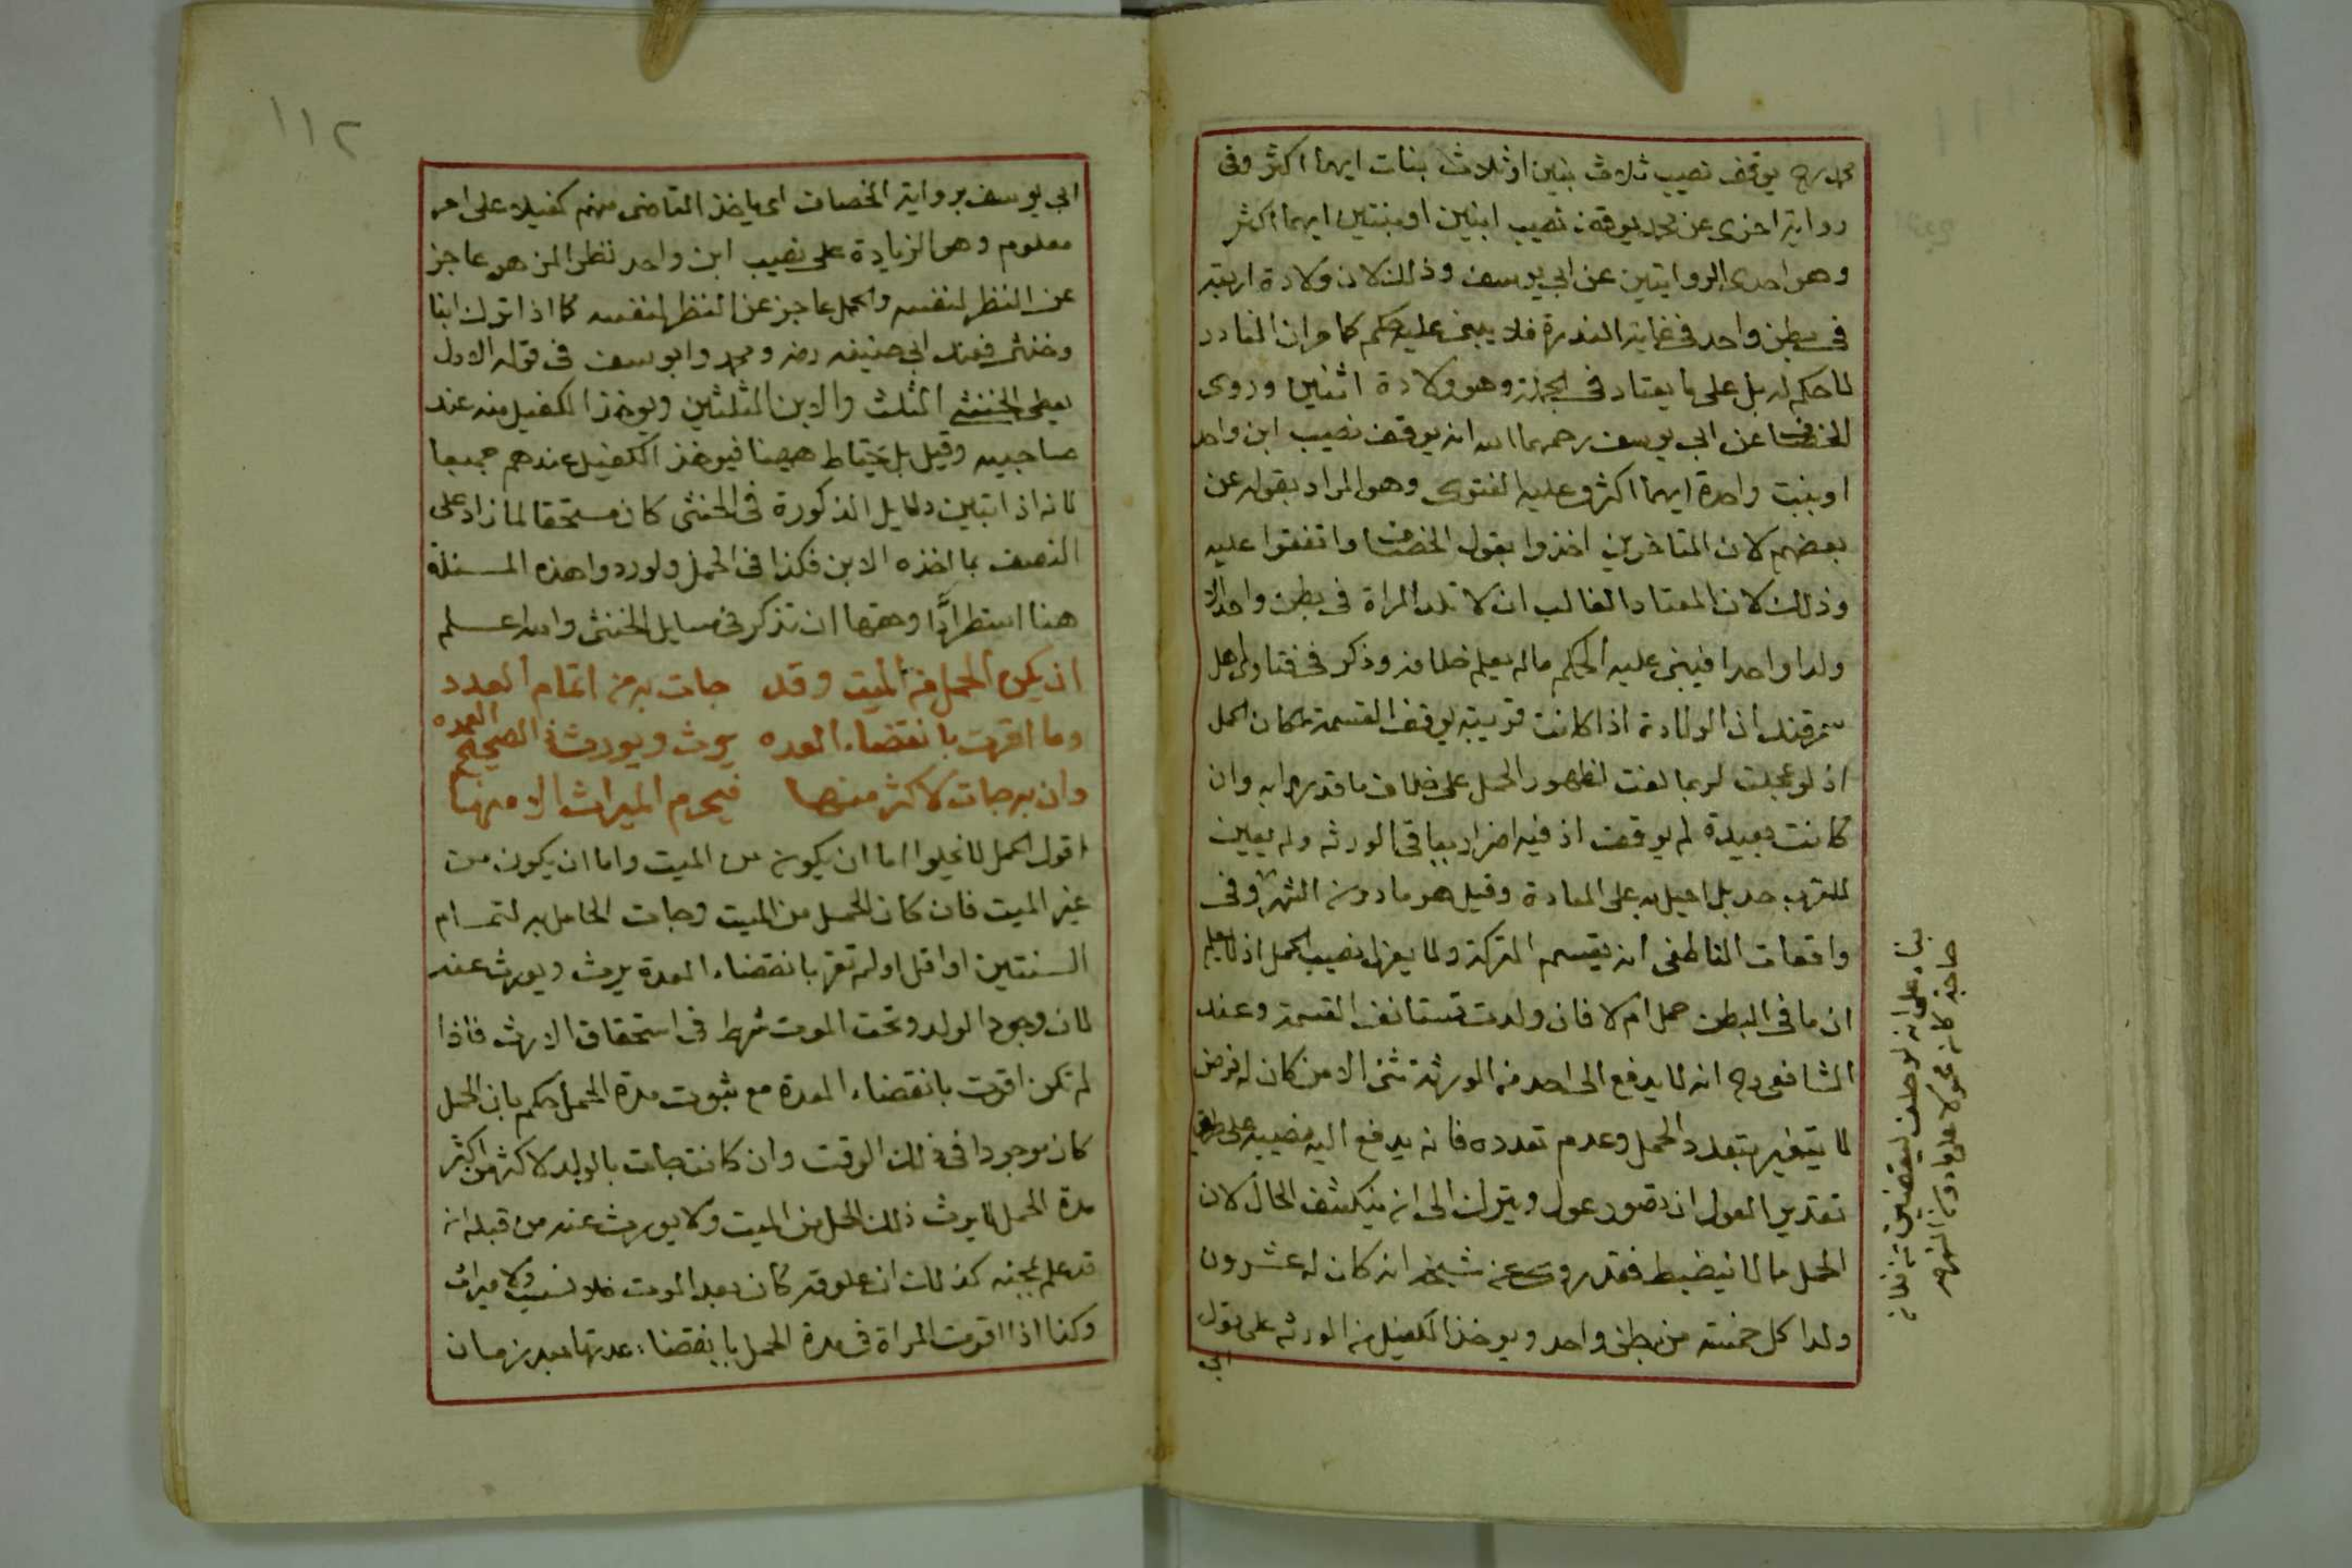 محمد رح يوقف نصيب ثلاث بنين او ثلاث بنات ايهما اكثر وفى
رواية اخرى عن محمد يوقف نصيب ابنين او بنتين ايهما اكثر
وهو احدى الروايتين عن ابي يوسف وذلك لان ولادة اربعة
في بطن واحد في غاية الندرة فلا يبنى عليه حكم كما مر ان النادر
لا حكم له بل على ما يعتاد في الجملة وهو ولادة اثنين وروى
الخصاف عن ابي يوسف رحمهما الله انه يوقف نصيب ابن واحد
او بنت واحدة ايهما اكثر وعليه الفتوى وهو المراد بقوله عن
بعضهم لان المتاخرين اخذوا بقول الخصاف واتفقوا عليه
وذلك لان المعتاد الغالب ان لا تلد المراة في بطن واحد الا
ولدا واحدا فيبنى عليه الحكم ما لم يعلم خلافه وذكر في فتاوى اهل
سمرقند ان الولادة اذا كانت قريبة يوقف القسمة لمكان الحمل
اذ لو عجلت لربما لغت لظهور الحمل على خلاف ما قدر به وان
كانت بعيدة لم يوقف اذ فيه اضرار بباقى الورثه ولم يعين
للقرب حد بل احيل به على العادة وقيل هو ما دون الشهر وفى
واقعات الناطفى انه يقسم التركة ولا يعزل نصيب الحمل اذ لا يعلم
ان ما في البطن حمل ام لا فان ولدت تستانف القسمة وعند
الشافعى رح انه لا يدفع الى احد من الورثة شئ الا من كان له فرض
لا يتغير بتعدد الحمل وعدم تعدده فانه يدفع اليه نصيبه على
تقدير العول ان تصور عول ويترك الى ان ينكشف الحال لان
الحمل مما لا ينضبط فقد روى عن شيخ انه كان له عشرون
ولدا كل خمسة من بطن واحد ويوخذ الكفيل من الورثه على قول
ابي
بناء على انه لو حلف ليقضين
١١٢
ابي يوسف برواية الخصاف اى ياخذ القاضى منهم كفيلا على امر
معلوم وهو الزيادة على نصيب ابن واحد نظرا لمن هو عاجز
عن النظر لنفسه والحمل عاجز عن النظر لنفسه كما اذا ترك ابنا
وخنثى فعند ابي حنيفه رضه ومحمد وابو يوسف في قوله الاول
يعطى الخنثى الثلث والابن الثلثين ويوخذ الكفيل منه عند
صاحبيه وقيل بل يحتاط ههنا فيوخذ الكفيل عندهم جميعا
لانه اذا تبين دلايل الذكورة في الخنثى كان مستحقا لما زاد على
النصف مما اخذه الابن فكذا في الحمل ولوردوا هذه المسئلة
هنا استطرادًا وحقها ان تذكر في مسايل الخنثى والله اعلم
ان يكن الحمل من الميت وقد جات به من اتمام العدد
وما اقرت بانقضاء العده يرث ويورث في الصحيح العمده
وان به جات لاكثر منها فيحرم الميراث الا منها
اقول الحمل لا يخلوا اما ان يكون من الميت واما ان يكون من
غير الميت فان كان الحمل من الميت وجات الحامل به لتمام
السنتين او اقل او لم تقر بانقضاء العدة يرث ويورث عنه
لان وجود الولد وقت الموت شرط في استحقاق الارث فاذا
لم تكن اقرت بانقضاء العدة مع ثبوت مدة الحمل حكم بان الحمل
كان موجودا في ذلك الوقت وان كانت جات بالولد لاكثر من اكثر
مدة الحمل لا يرث ذلك الحمل من الميت ولا يورث عنه من قبله انه
قد علم بمجيئه كذلك ان علوقه كان بعد الموت فلا نسب ولا ميراث
وكذا اذا اقرت المراة في مدة الحمل بانقضاء عدتها بعد زمان